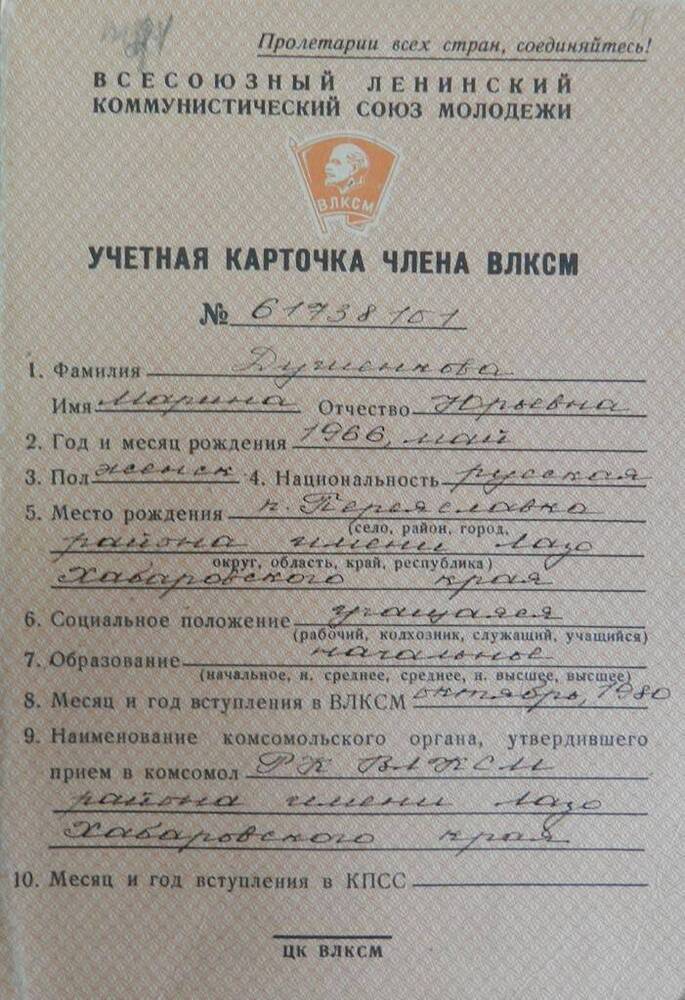 Пролетарии всех стран, соединяйтесь!
ВСЕСОЮЗНЫЙ ЛЕНИНСКИЙ
КОММУНИСТИЧЕСКИЙ СОЮЗ МОЛОДЕЖИ
ВЛКСМ
УЧЕТНАЯ КАРТОЧКА ЧЛЕНА ВЛКСМ
№ 61738101
1. Фамилия Душенкова
Имя Марина Отчество Юрьевна
2. Год и месяц рождения 1966, май
3. Пол женск 4. Национальность русская
5. Место рождения п. Переяславка
(село, район, город,
района имени Лазо
округ, область, край, республика)
Хабаровского края
6. Социальное положение учащаяся
(рабочий, колхозник, служащий, учащийся)
7. Образование начальное
(начальное, н. среднее, среднее, н. высшее, высшее)
8. Месяц и год вступления в ВЛКСМ октябрь, 1980
9. Наименование комсомольского органа, утвердившего
прием в комсомол РК ВЛКСМ
района имени Лазо
Хабаровского края
10. Месяц и год вступления в КПСС
ЦК ВЛКСМ